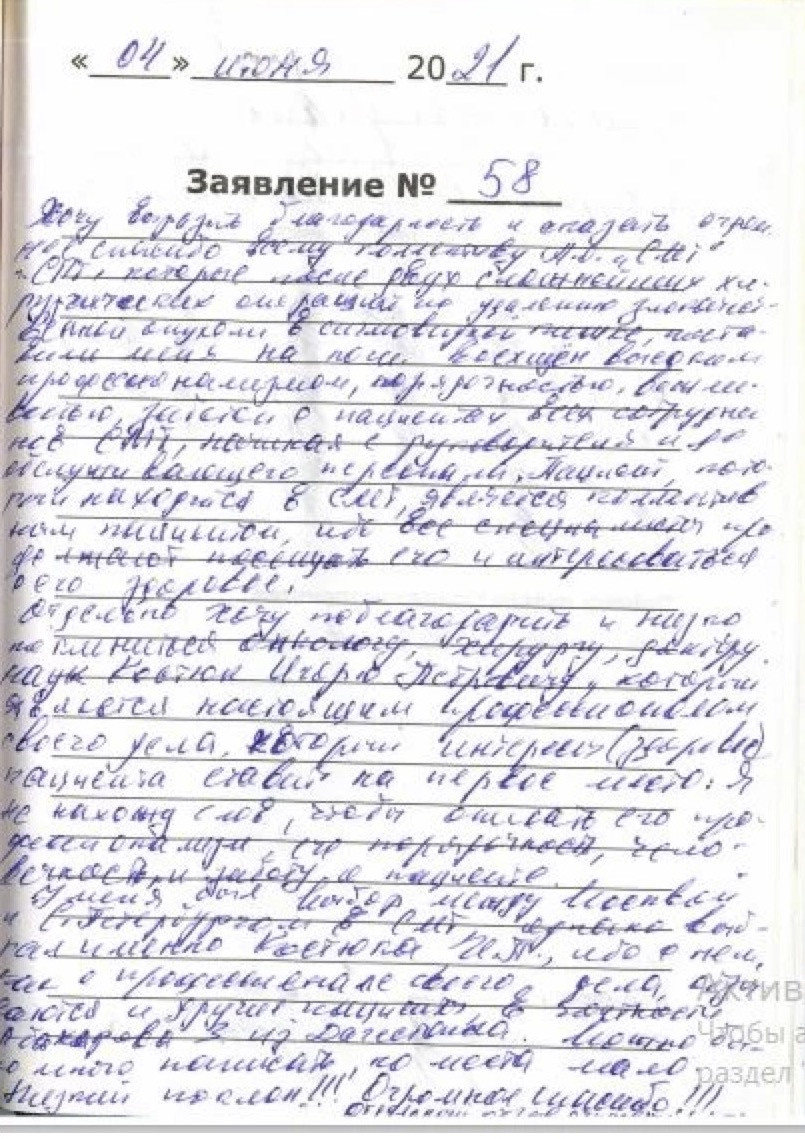 « 04 » июня 2021 г.
Заявление № 58
Хочу выразить благодарность и сказать огром
ное спасибо всему коллективу
которые после двух сложнейших хи-
рургических операций по удалению злокачест-
венной опухоли в сигмовидной кишке, поста-
вили меня на ноги. Восхищён высоким
профессионализмом, порядочностью, вежли-
востью, заботой о пациентах всех сотрудни
ков СМТ, начиная с руководителя и до
обслуживающего персонала. Пациент, кото-
рый находится в СМТ, является коллектив
ным пациентом, ибо все специалисты про
должают посещать его и интересоваться
его здоровье.
Отдельно хочу поблагодарить и низко
поклониться онкологу, хирургу, доктору
наук Костюк Игорю Петровичу, который
является настоящим профессионалом
своего дела, который интересы (здоровье)
пациента ставит на первое место. Я
не нахожу слов, чтобы описать его про-
фессионализм, его порядочность, чело-
вечность и заботу о пациенте.
У меня был выбор между Москвой
и С. Петербургом в СМТ однако выб-
рал именно Костюка И.П., ибо о нем,
как о профессионале своего дела, отзы
ваются и другие пациенты в частности
из Дагестана. Можно
много написать, но места мало
Низкий поклон!!! Огромное спасибо!!!
Актив
Чтобы а
раздел